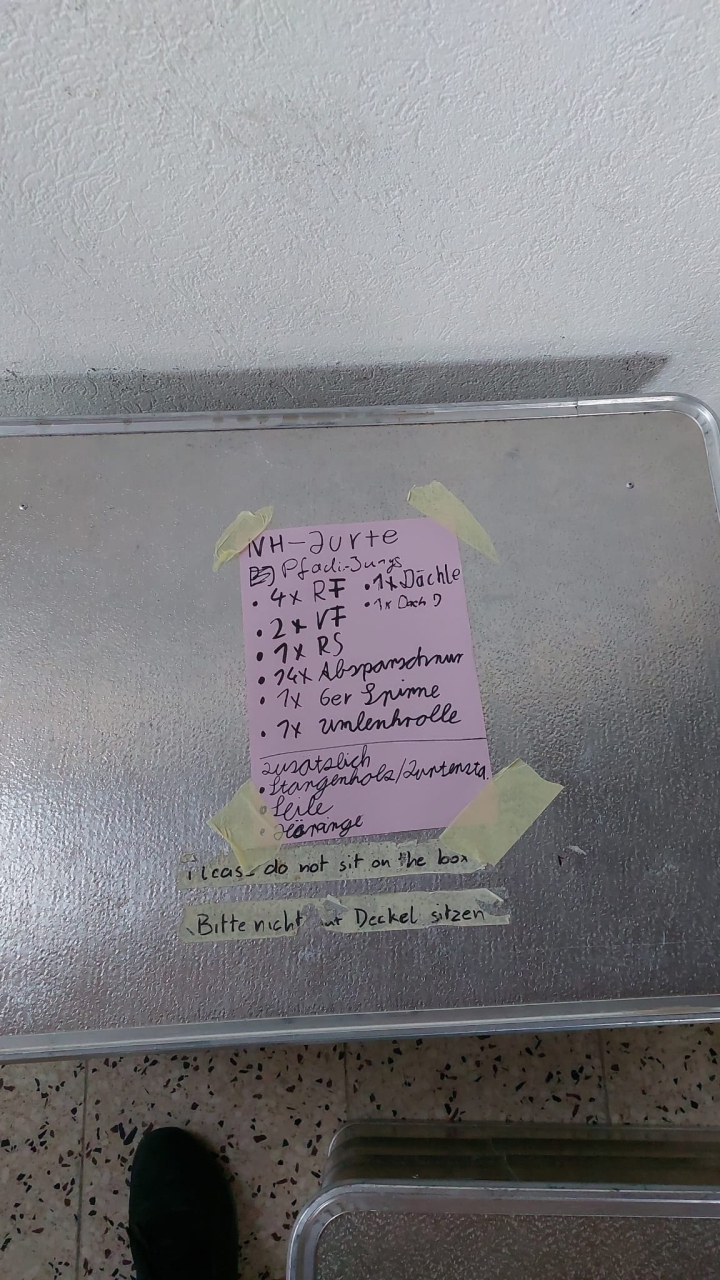 NH-Jurte
Pfadi-Jungs
• 4x RF
• 1x Dächle
• 2x VF
• 1x Dach
• 1x RS
• 14x Absparschnur
• 1x 6er Spinne
• 1x Umlenkrolle
Zusätslich
• Stangenholz/Jurtensta.
• Seile
• Häringe
Please do not sit on the box
Bitte nicht auf Deckel sitzen